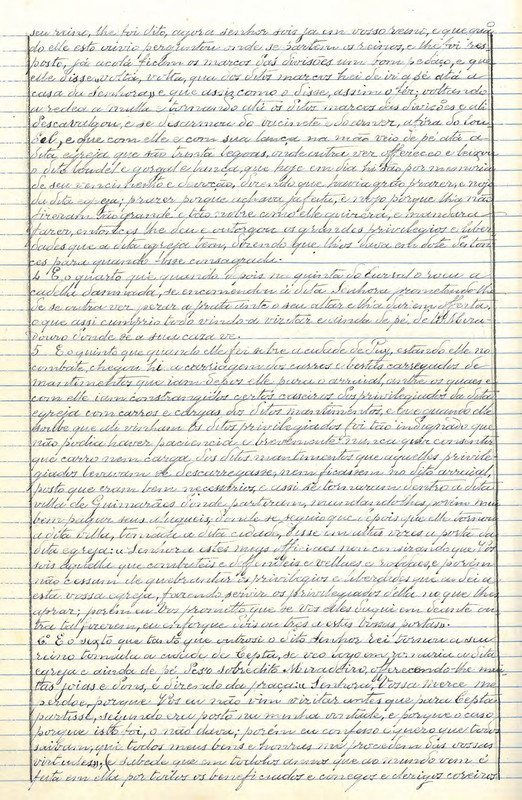 seu reino, lhe foi dito, agora senhor sois ja em vosso reino, e que quan
do elle esto ouvio perguntou onde se partem os reinos, e lhe foi res
posto, já acolá ficam os marcos das divisões um bom pedaço, e que
elle disse volta, volta, qua dos ditos marcos hei de ir a pé atá a
casa da Senhora,, e que assim como o disse, assim o fez; voltando
a redea a mulla e tornando até os ditos marcos das divisões e ali
descavalgou, e se desarmou do bacinete e do amez, afora do lou
del, e que com elle e com sua lança na mão veio de pé atá a
dita egreja que são trinta legoas, onde outra vez offereceo e leixou
o dito loudel e gorgal e lança, que hoje em dia hi são por memoria
de seu vencimento e devoção, dizendo que havia grão prazer, e nojo
da dita egreja; prazer porque achava já feita, e nojo porque lha não
fizeram tão grande e tão nobre como elle quizera, e mandara
fazer, entonces lhe deu e outorgou os grandes privilegios e liber
dades que a dita egreja tem, dizendo que lhos dava em dote de ton
ces para quando fosse consagrada.
4 E o quarto que quando depois na quinta do Curval o roeu a
cadella damnada, se encomendou á dita Senhora promettendo-lhe
de se outra vez pezar a prata ante o seu altar e lha dar em offerta,
o que assi cumprio todo vindo a vizitar e vinda de pé, de lo Mira-
douro d'onde se a sua casa ve.
5 E o quinto que quando elle foi sobre a cidade de Tuy, estando elle no
combate, chegou hi a carriagem dos carros e bestas carregados de
mantimentos que iam depos elle para o arraial, entre os quaes
com elle iam constrangidos certos caseiros dos privilegiados da dita
egreja com carros e cargas dos ditos mantimentos, e que quando elle
soube que ali vinham os ditos privilegiados foi tão indignado que
não podia haver paciencia e brevemente nunca quiz consentir
que carro nem carga dos ditos mantimentos que aquelles privile-
giados levavam se descarregasse, nem ficassem no dito arraial,
posto que eram bem necessarios, e assi se tornaram dentro a dita
villa de Guimarães d'onde partiram, mandando-lhes porém mui
bem pagar seus alugueis, d'onde se seguio que depois que elle tornou
a dita villa, tomada a dita cidade, disse em altas vozes a porta da
dita egreja: a Senhora estes meus officiaes non consirando que Vós
sois aquella que combateis e deffendeis e vellaes e roldaes, e porém
não cessam de quebrantar os privilegios e liberdades que eu dei a
esta vossa egreja, fazendo servir os privilegiados della no que lhes
apraz; porém eu Vos prometto que se vos elles daqui em deante ou-
tra tal fizerem, eu enforque dois ou tres a estas vossas portas.
6 E o sexto que tanto que entrosi o dito senhor rei tornou a seu
reino tomada a cidade de Cepta, se veo logo em romaria a dita
egreja e ainda de pé Peso sobredito Miradoiro, offerecendo-lhe mui
tas joias e dons, e dizendo da praça: Senhora, Vossa Merce me
perdoe, porque Vos eu não vim vizitar antes que para Cepta
partisse, segundo era posto na minha vontade, e porque o caso
porque isto foi, o não dava; porém eu confesso e quero que todos
saibam, que todos meus bens e honras me procedem das vossas
virtudes,, E sabede que em todolos annos que ao mundo vem é
feita em ella por todos os beneficiados e conegos e clerigos coreiros